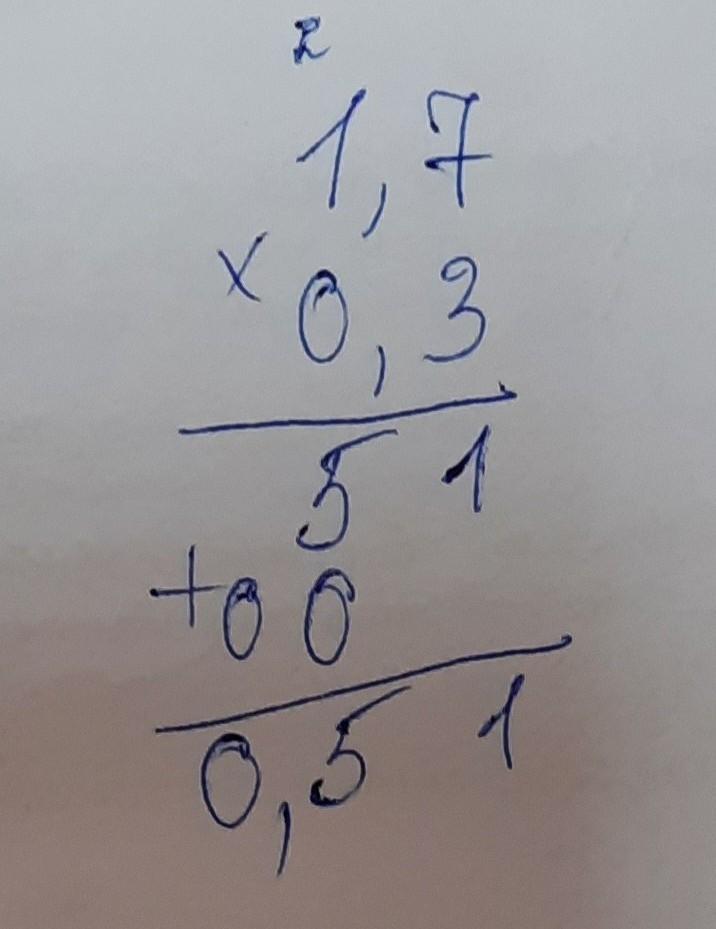 2
1,7
x 0,3
51
+00
0,51